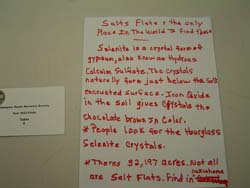 Salts Flats r the only
Place In The World To find these
Selenite is a crystal form of
gypsum, also know as Hydrous
Calcuim Sulfate. The Crystals
naturally form just below the Salt
encrusted surface. Iron Oxide
in the soil gives Crystals the
Chocolate brown In Color.
* People Look for the Hourglass
Selenite Crystals.
* Theres
acres. Not all
are Salt Flats. Find in Oklahoma